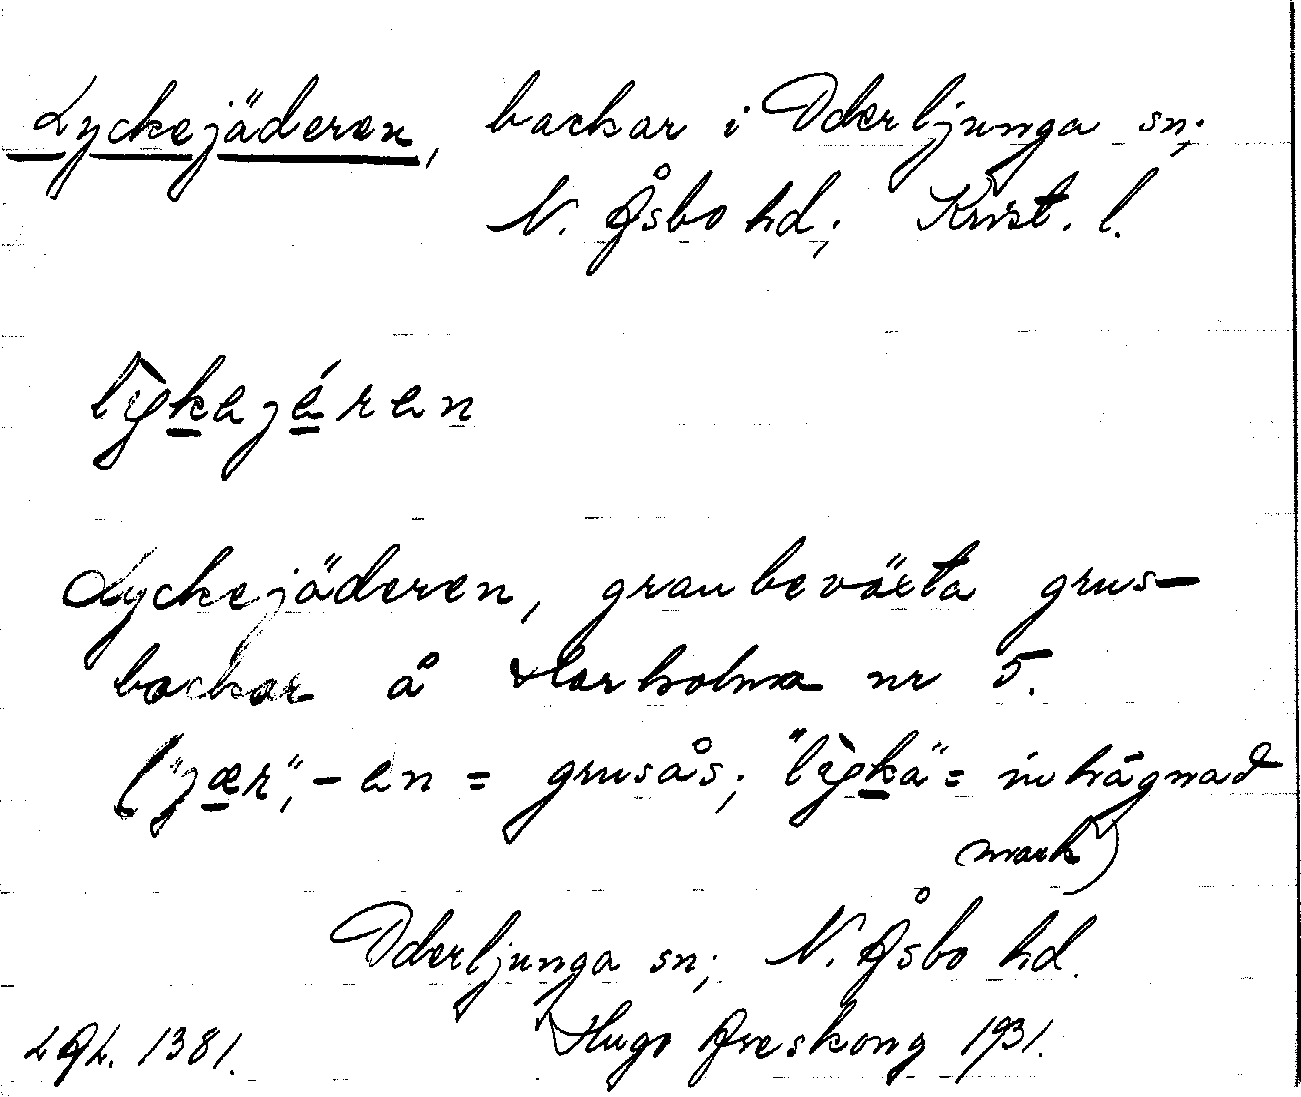 Lyckejäderen, backar i Oderljunga sn;
N. Åsbo hd; Krist. l.
lỳkejéren
Lyckejäderen, granbeväxta grus-
backar å Harholma nr 5.
("jær", -en = grusås; "lỳkä" = inhägnad
mark)
Oderljunga sn; N. Åsbo hd.
LAL. 1381. Hugo Areskoug 1931.